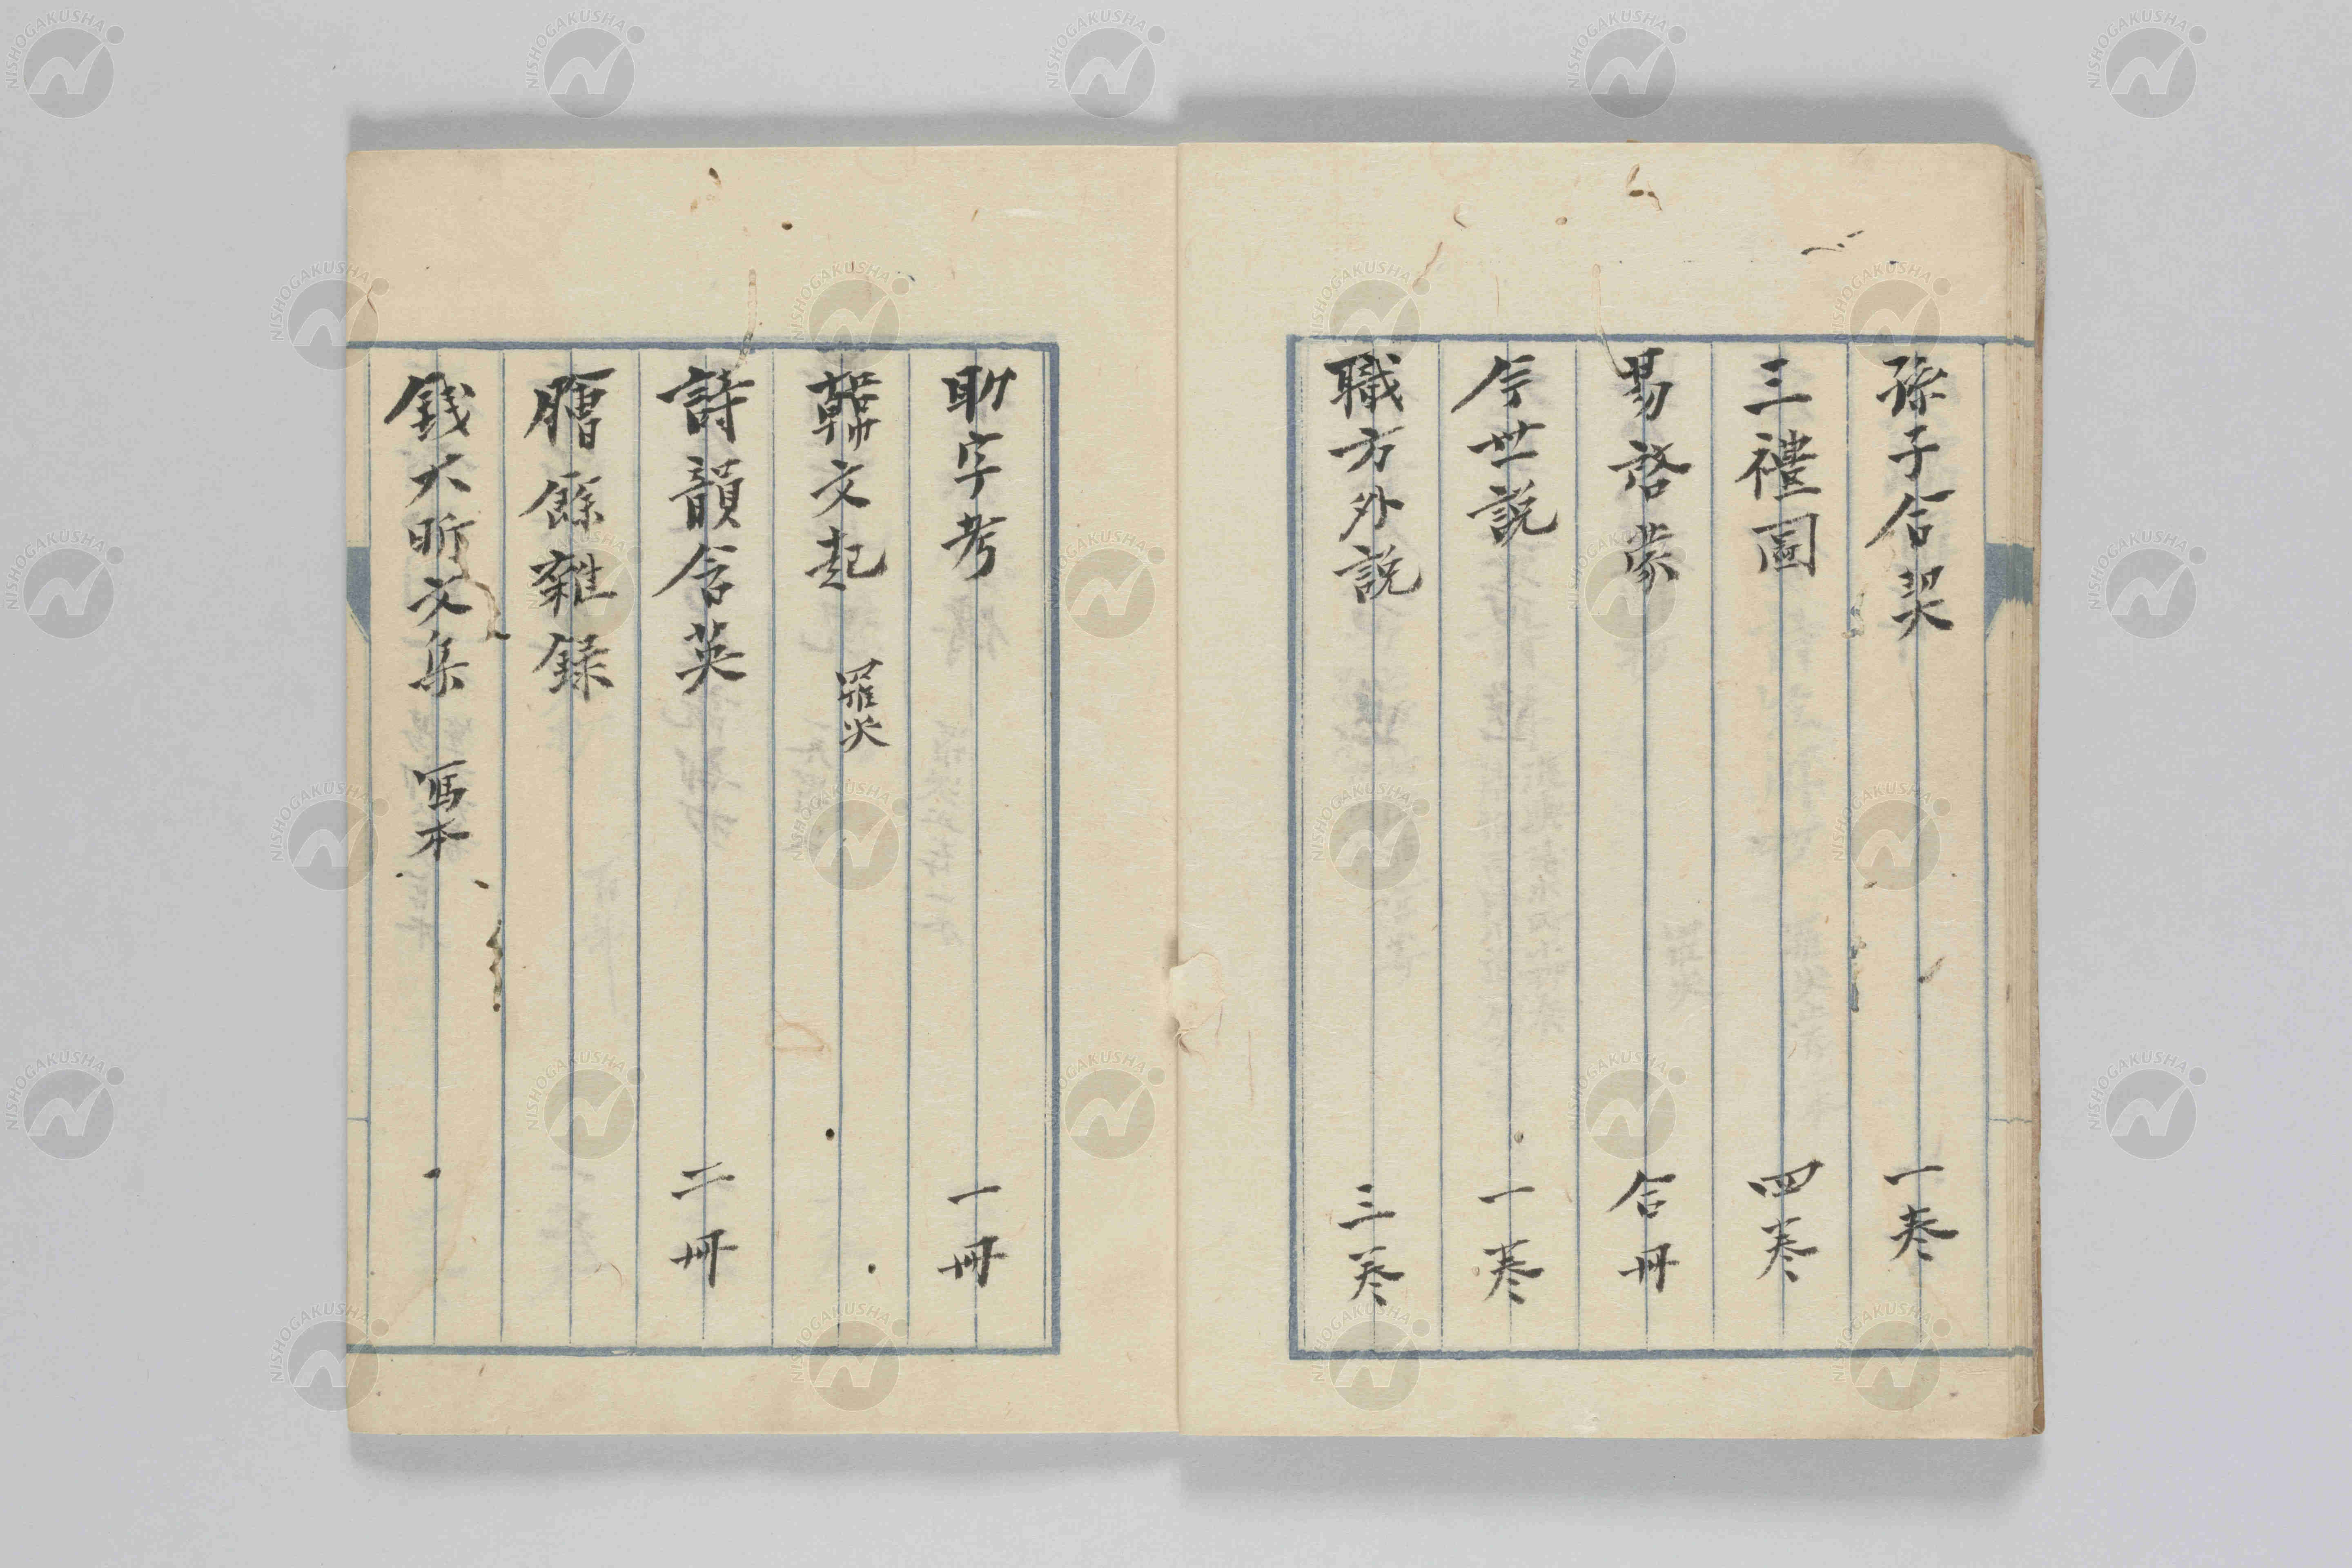 孫子合契 一巻
三禮圖 四巻
易啓蒙 合冊
今世説 一巻
職方外説 三巻
助字考 一冊
韓文起 羅災
詩韻含英 二冊
膾餘雜録
錢大昕文集 写本
NISHOGAKUSHA